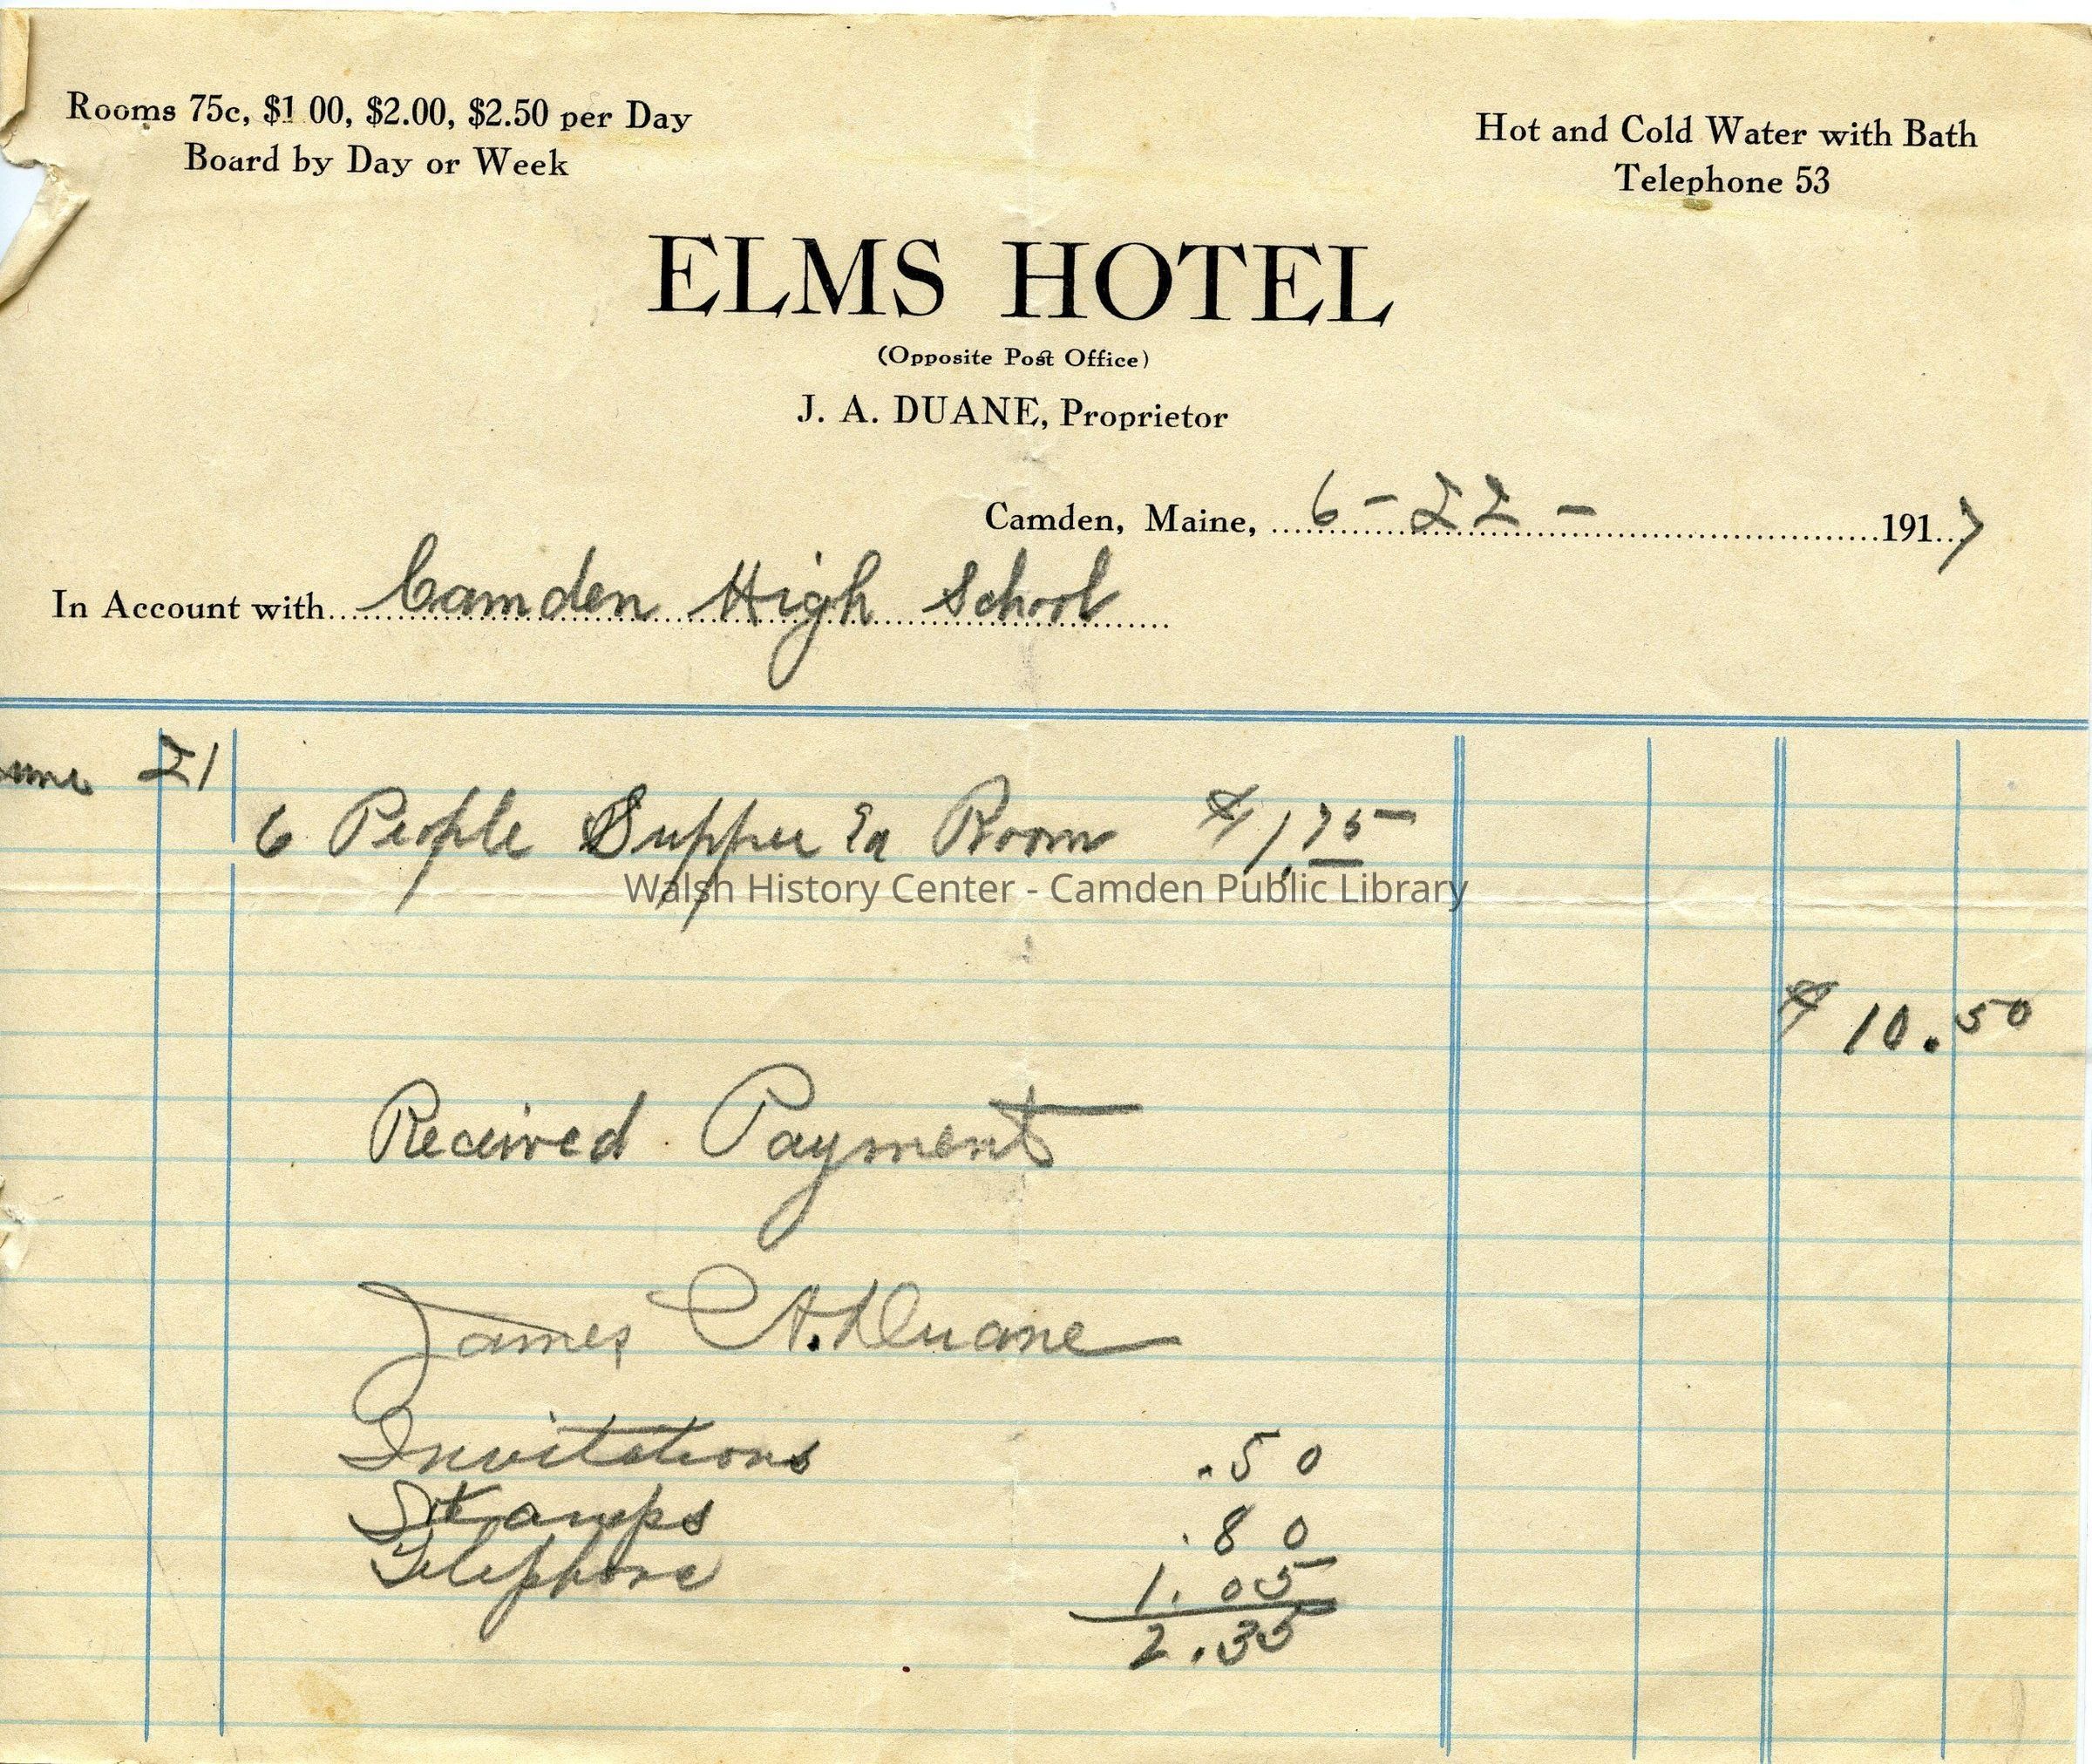 Rooms 75c, $1 00, $2.00, $2.50 per Day
Board by Day or Week
Hot and Cold Water with Bath
Telephone 53
ELMS HOTEL
(Opposite Post Office)
J. A. DUANE, Proprietor
Camden, Maine, 6-22- 1917
In Account with Camden High School
June 21
6 People Supper & Room $1,75
Walsh History Center - Camden Public Library
$10.50
Received Payment
James A. Duane
Invitations .50
Stamps .80
Telephone 1.05
2.35